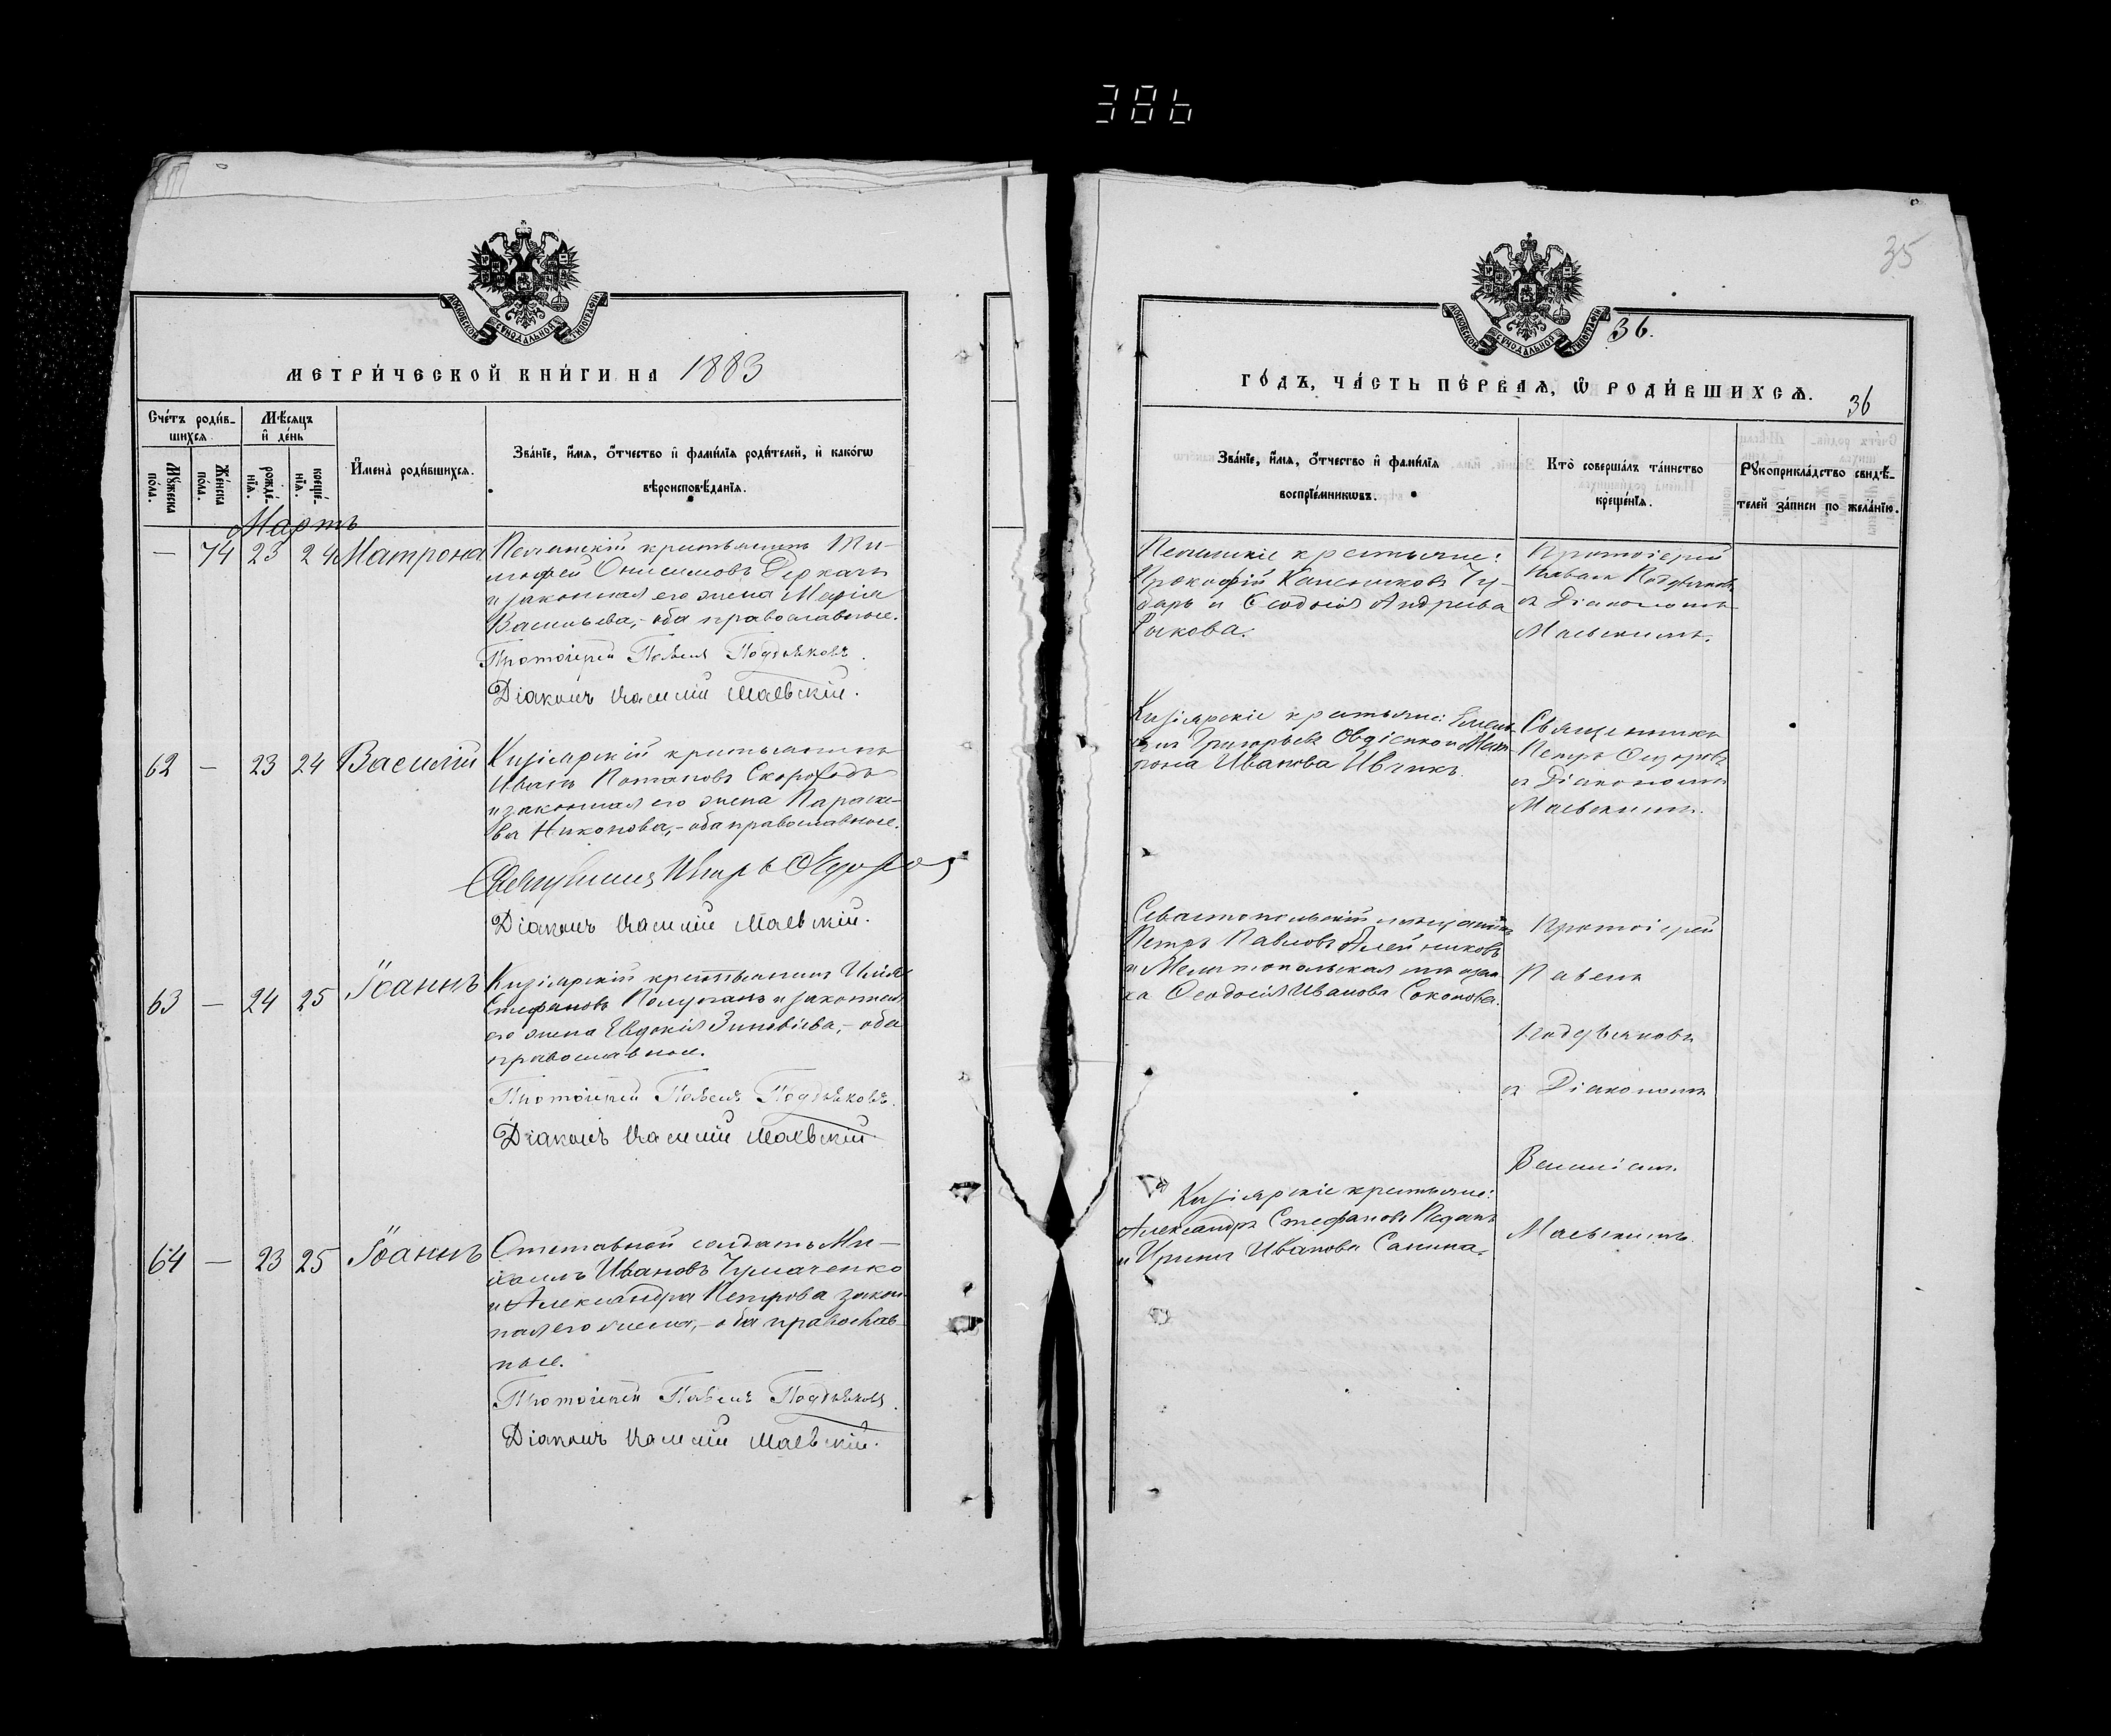 386
35
МОСКОВСКОЙ СѴНОДАЛЬНОЙ ТИПОГРАФІИ
МЕТРИ́ЧЕСКОЙ КНИ́ГИ НА 1883
Сче́тъ роди́в-
шихся.
Мѣ́сяцъ
и҆ де́нь
Му́жеска
по́ла.
Же́нска
по́ла.
рожде́-
нїѧ.
креще́-
нїѧ.
И҆мена̀ роди́вшихся.
Зва́нїе, и҆́мѧ, ѻ҆́тчество и҆ фами́лїѧ роди́телей, и҆ како́гѡ
вѣроисповѣ́данїѧ.
Мартъ
— 74 23 24 Матрона
крестьянинъ Ти-
мофей Онисимовъ Деркачъ
и законная его жена Марія
Васильева,- оба православные.
Протоіерей Павелъ Поддьяковъ.
Діаконъ Василій Маевскій.
62 — 23 24 Василій
Кизіярскій крестьянинъ
Иванъ Потаповъ Скороходъ
и законная его жена Параске-
ва Никонова,- оба православные.
Священникъ Петръ
Діаконъ Василій Маевскій.
63 — 24 25 Іоаннъ
Кизіярскій крестьянинъ Илія
Стефановъ и законная
его жена Евдокія Зиновіева,- оба
православные.
Протоіерей Павелъ Поддьяковъ.
Діаконъ Василій Маевскій
64 — 23 25 Іоаннъ
Отставной солдатъ Ми-
хаилъ Ивановъ Чумаченко
и Александра Петрова закон-
ная его жена,- оба православ-
ные.
Протоіерей Павелъ Поддьяковъ.
Діаконъ Василій Маевскій.
МОСКОВСКОЙ СѴНОДАЛЬНОЙ ТИПОГРАФІИ
36.
ГО́ДЪ, ЧА́СТЬ ПЕ́РВАѦ, Ѡ҆ РОДИ́ВШИХСѦ.
36
Зва́нїе, и҆́мѧ, ѻ҆́тчество и҆ фами́лїѧ
воспрїе́мникѡвъ.
Кто̀ соверша́лъ та́инство
креще́нїѧ.
Рꙋкоприкла́дство свидѣ́-
телей за́писи по жела́нїю.
крестьяне:
Прокофій
и Ѳеодосія Андреева
Рыкова.
Протоіерей
Павелъ Поддьяковъ
съ Діакономъ
Маевскимъ.
Кизіярскіе крестьяне:
Григорьевъ Овдіенко и Мат-
рона Иванова
Священникъ
Петръ
съ Діакономъ
Маевскимъ.
Севастопольскій мещанинъ
Петръ Павловъ Алейниковъ
и Мелитопольская мещан-
ка Ѳеодосія Иванова Соколова.
Протоіерей
Павелъ
Поддьяковъ
съ Діакономъ
Василіемъ
Маевскимъ.
Кизіярскіе крестьяне:
Александръ Стефановъ Педанъ
и Ирина Иванова Санина.